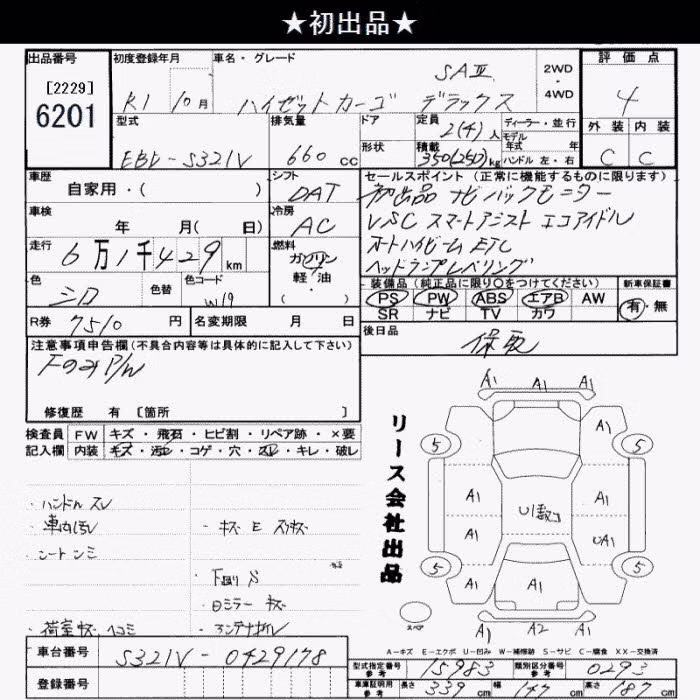 ★初出品★
出品番号
[2229]
6201
初度登録年月
R1 10月
車名・グレード
SAⅢ
ハイゼットカーゴ デラックス
2WD
・
4WD
評価点
4
外装 内装
C C
型式
EBD-S321V
排気量
660 cc
ドア
形状
定員
2(4)人
積載
350(250)kg
ディーラー・並行
モデル
年式 年
ハンドル 左・右
車歴
自家用・( )
シフト
DAT
車検
年 月( 日)
冷房
AC
走行
6万1千429 km
燃料
ガソリン
軽油
( ・ )
色
シロ
色替
色コード
W19
R券 7510 円
名変期限 月 日
セールスポイント (正常に機能するものに限ります)
初出品 ナビ バックモニター
VSC スマートアシスト エコアイドル
オートハイビーム ETC
ヘッドランプレベリング
装備品 (純正品に限り○をつけてください)
PS PW ABS エアB AW
SR ナビ TV カワ
新車保証書
有・無
後日品
保取
注意事項申告欄(不具合内容等は具体的に記入して下さい)
FのみP/W
修復歴 有 [箇所 ]
検査員
記入欄
FW キズ・飛石・ヒビ割・リペア跡・×要
内装 キズ・汚レ・コゲ・穴・スレ・キレ・破レ
・ハンドルスレ
・車内汚レ
・シートシミ
・荷室キズ ヘコミ
・キズ E スリキズ
・下廻りS
・ミラーキズ
・アンテナ
リース会社出品
A1 A1 A1
5 A1 5
A1 A1
U1数コ
A1 UA1
5 A1 A1 A1 5
A1 A2 A1
スペア
A-キズ E-エクボ U-凹み W-補修跡 S-サビ C-腐食 XX-交換済
車台番号 S321V-0429178
登録番号
型式指定番号
参考
15983
類別区分番号
参考
0293
車庫証明用
参考
長さ 339 cm 幅 147 cm 高さ 187 cm